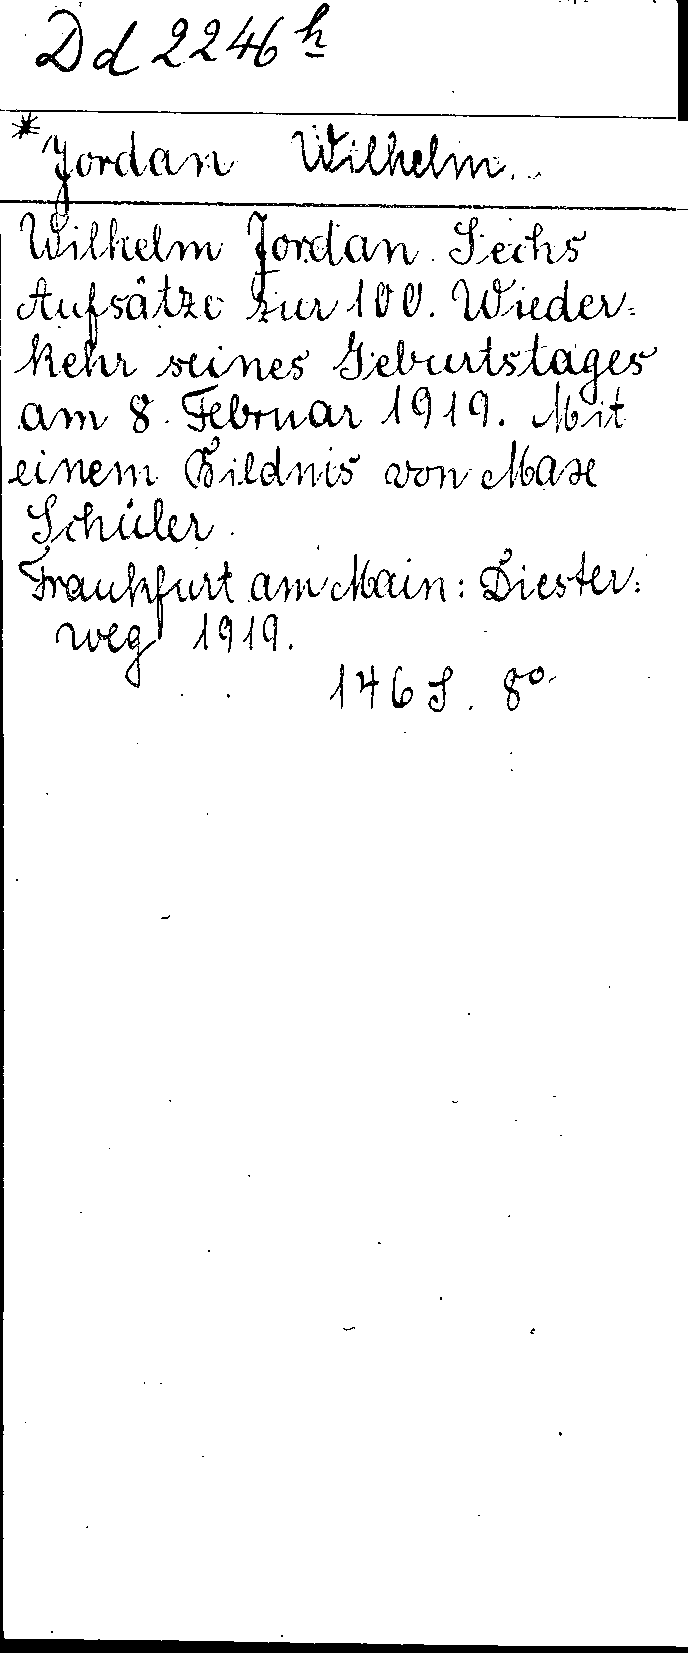 Dd 2246 h
*Jordan Wilhelm.
Wilhelm Jordan. Sechs
Aufsätze zur 100. Wieder=
kehr seines Geburtstages
am 8. Februar 1919. Mit
einem Bildnis von Max
Schüler.
Frankfurt am Main: Diester=
weg 1919.
146 S. 8°